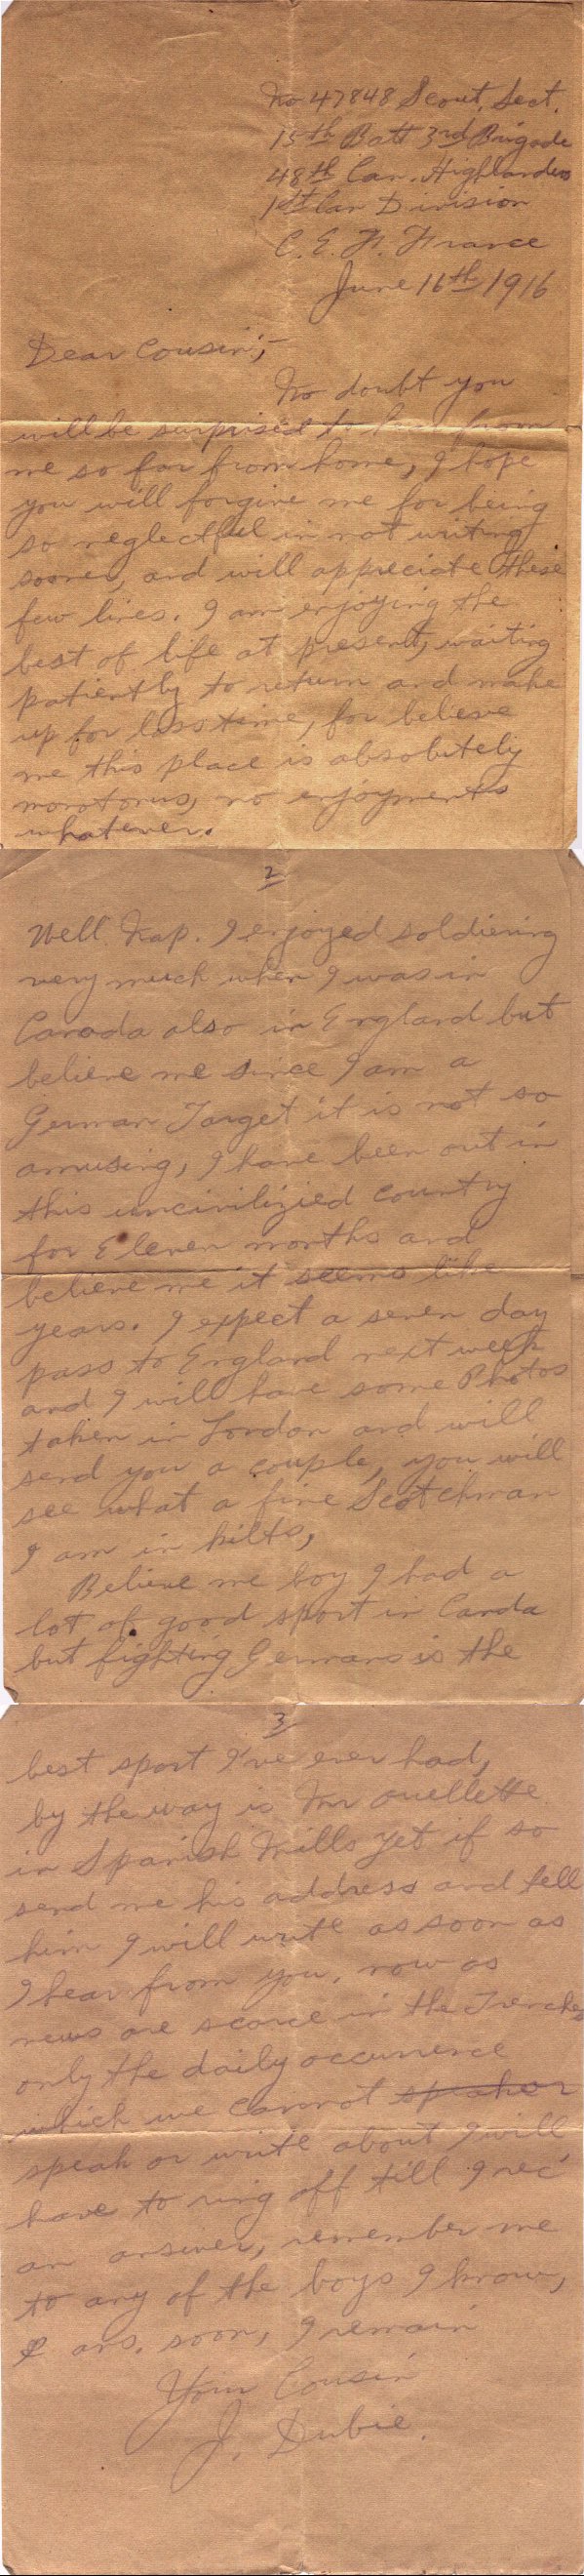 No 47848 Scout. Sect.
15th Batt 3rd Brigade
48th Can. Highlanders
1st Can Division
C. E. F. France
June 16th 1916
Dear Cousin;-
No doubt you
will be surprised to hear from
me so far from home, I hope
you will forgive me for being
so neglectful in not writing
sooner, and will appreciate these
few lines. I am enjoying the
best of life at present, waiting
patiently to return and make
up for loss time, for believe
me this place is absolutely
monotonus, no enjoyments
whatever.
2
Well Nap. I enjoyed soldiering
very much when I was in
Canada also in England but
believe me since I am a
German Target it is not so
amusing, I have been out in
this uncivilizied country
for Eleven months and
believe me it seems like
years. I expect a seven day
pass to England next week
and I will have some Photos
taken in London and will
send you a couple, you will
see what a fine Scotchman
I am in kilts,
Believe me boy I had a
lot of good sport in Canda
but fighting Germans is the
3
best sport I've ever had,
by the way is Mr Ouellette
in Spanish Mills yet if so
send me his address and tell
him I will write as soon as
I hear from you. now as
news are scarce in the Trenches
only the daily occurrence
which we cannot speak or
speak or write about I will
have to ring off till I rec'
an answer, remember me
to any of the boys I know,
& ans. soon, I remain
Your Cousin
J. Dubie.